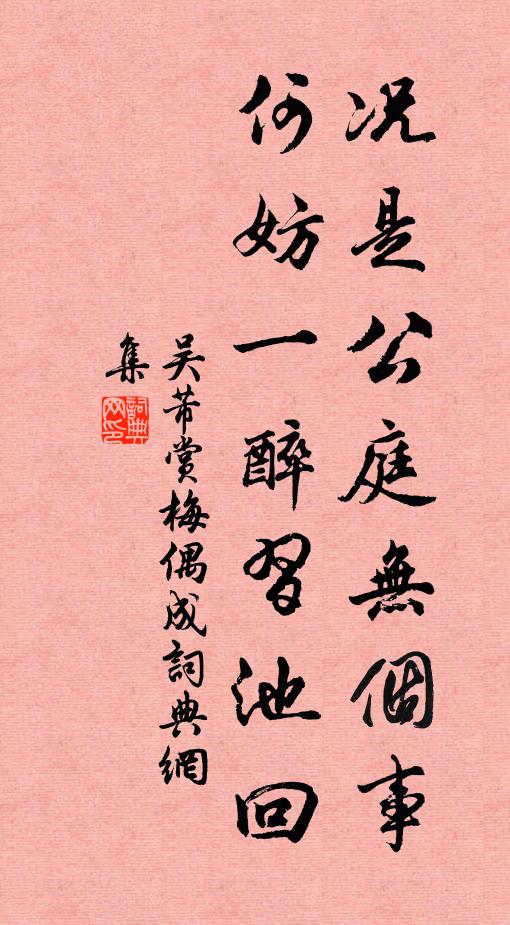 况是公庭無個事
何妨一醉習池回
吴芾賞梅偶成詞典網
集
詞典
网印